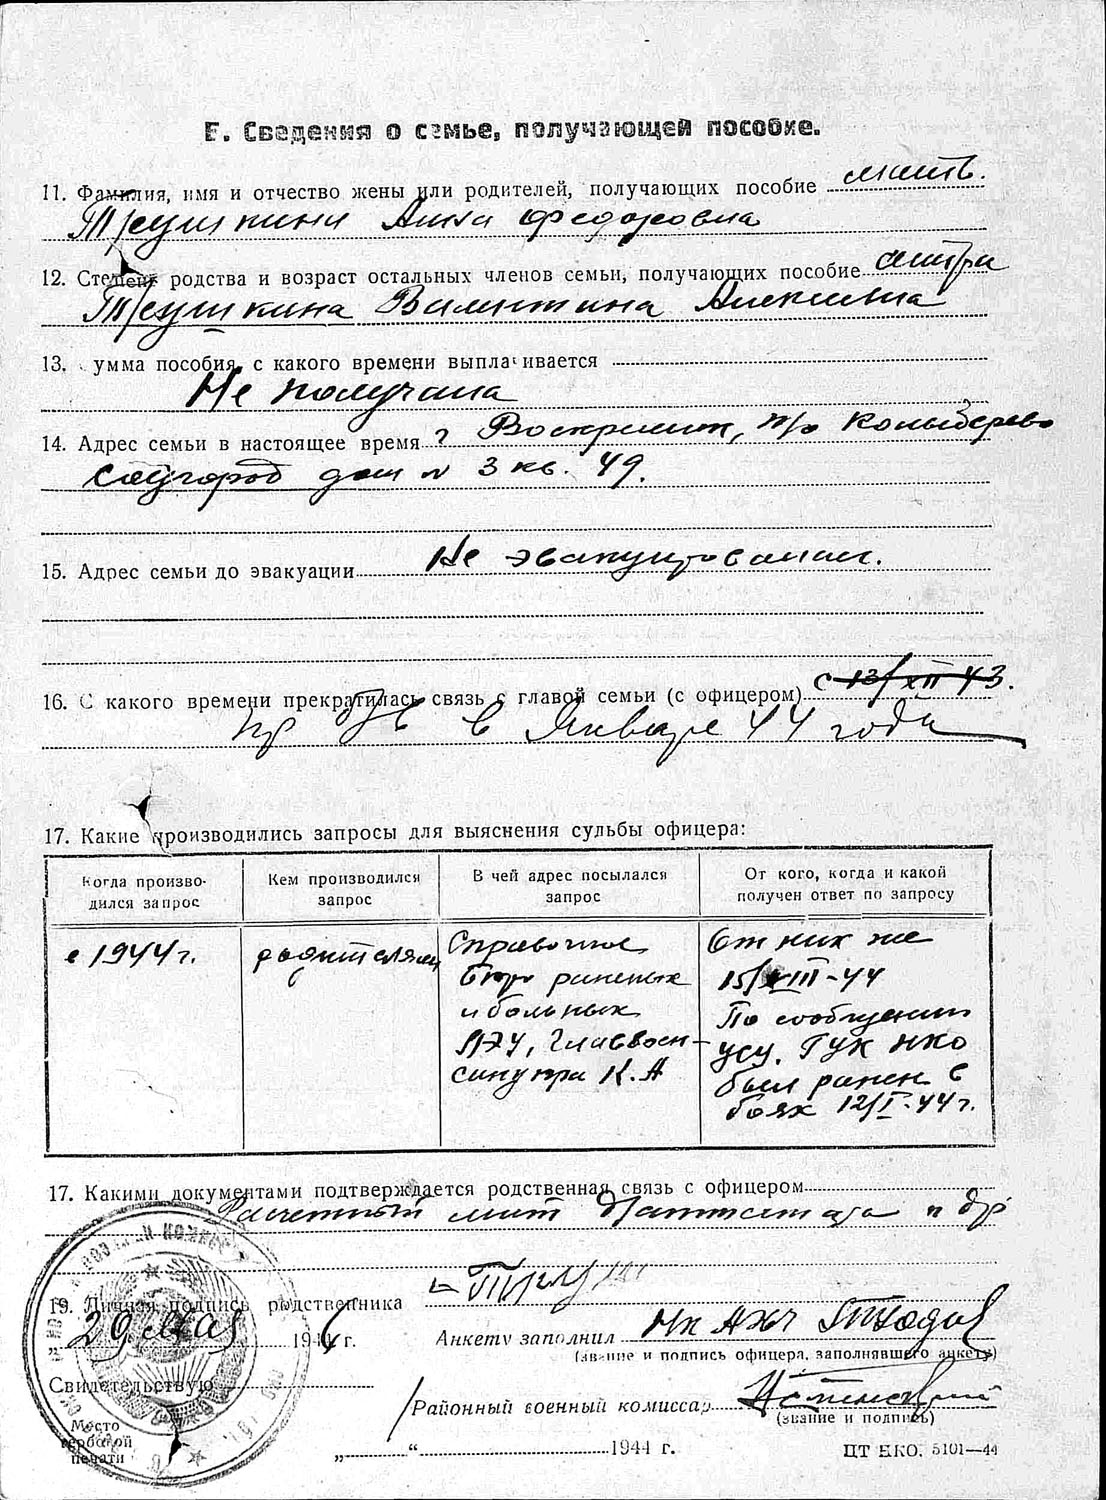 Е. Сведения о семье, получающей пособие.
11. Фамилия, имя и отчество жены или родителей, получающих пособие мать.
Трушкина Анна Федоровна
12. Степень родства и возраст остальных членов семьи, получающих пособие сестра
Трушкина Валентина Алексеевна
13. умма пособия, с какого времени выплачивается
Не получала
14. Адрес семьи в настоящее время г Воскресенск, п/о Колыберево
Соцгород дом № 3 кв. 49.
15. Адрес семьи до эвакуации Не эвакуировалась.
16. С какого времени прекратилась связь с главой семьи (с офицером) с 13/XII 43.
в Январе 44 года
17. Какие производились запросы для выяснения судьбы офицера:
Когда производился запрос
Кем производился запрос
В чей адрес посылался запрос
От кого, когда и какой получен ответ по запросу
в 1944 г.
родителями
Справочное
бюро раненых
и больных
ПЭУ, Главвоен-
санупра К.А
От них же
15/VIII-44
По сообщению
УСУ. ГУК НКО
был ранен в
боях 12/I-44 г.
17. Какими документами подтверждается родственная связь с офицером
Расчетный лист аттестата и др
19. Личная подпись родственника
29 мая 194 г.
Анкету заполнил
(звание и подпись офицера, заполнявшего анкету)
Свидетельствую
Районный военный комиссар
(звание и подпись)
Место
гербовой
печати
„ “ 1944 г.
ЦТ НКО. 5101—44